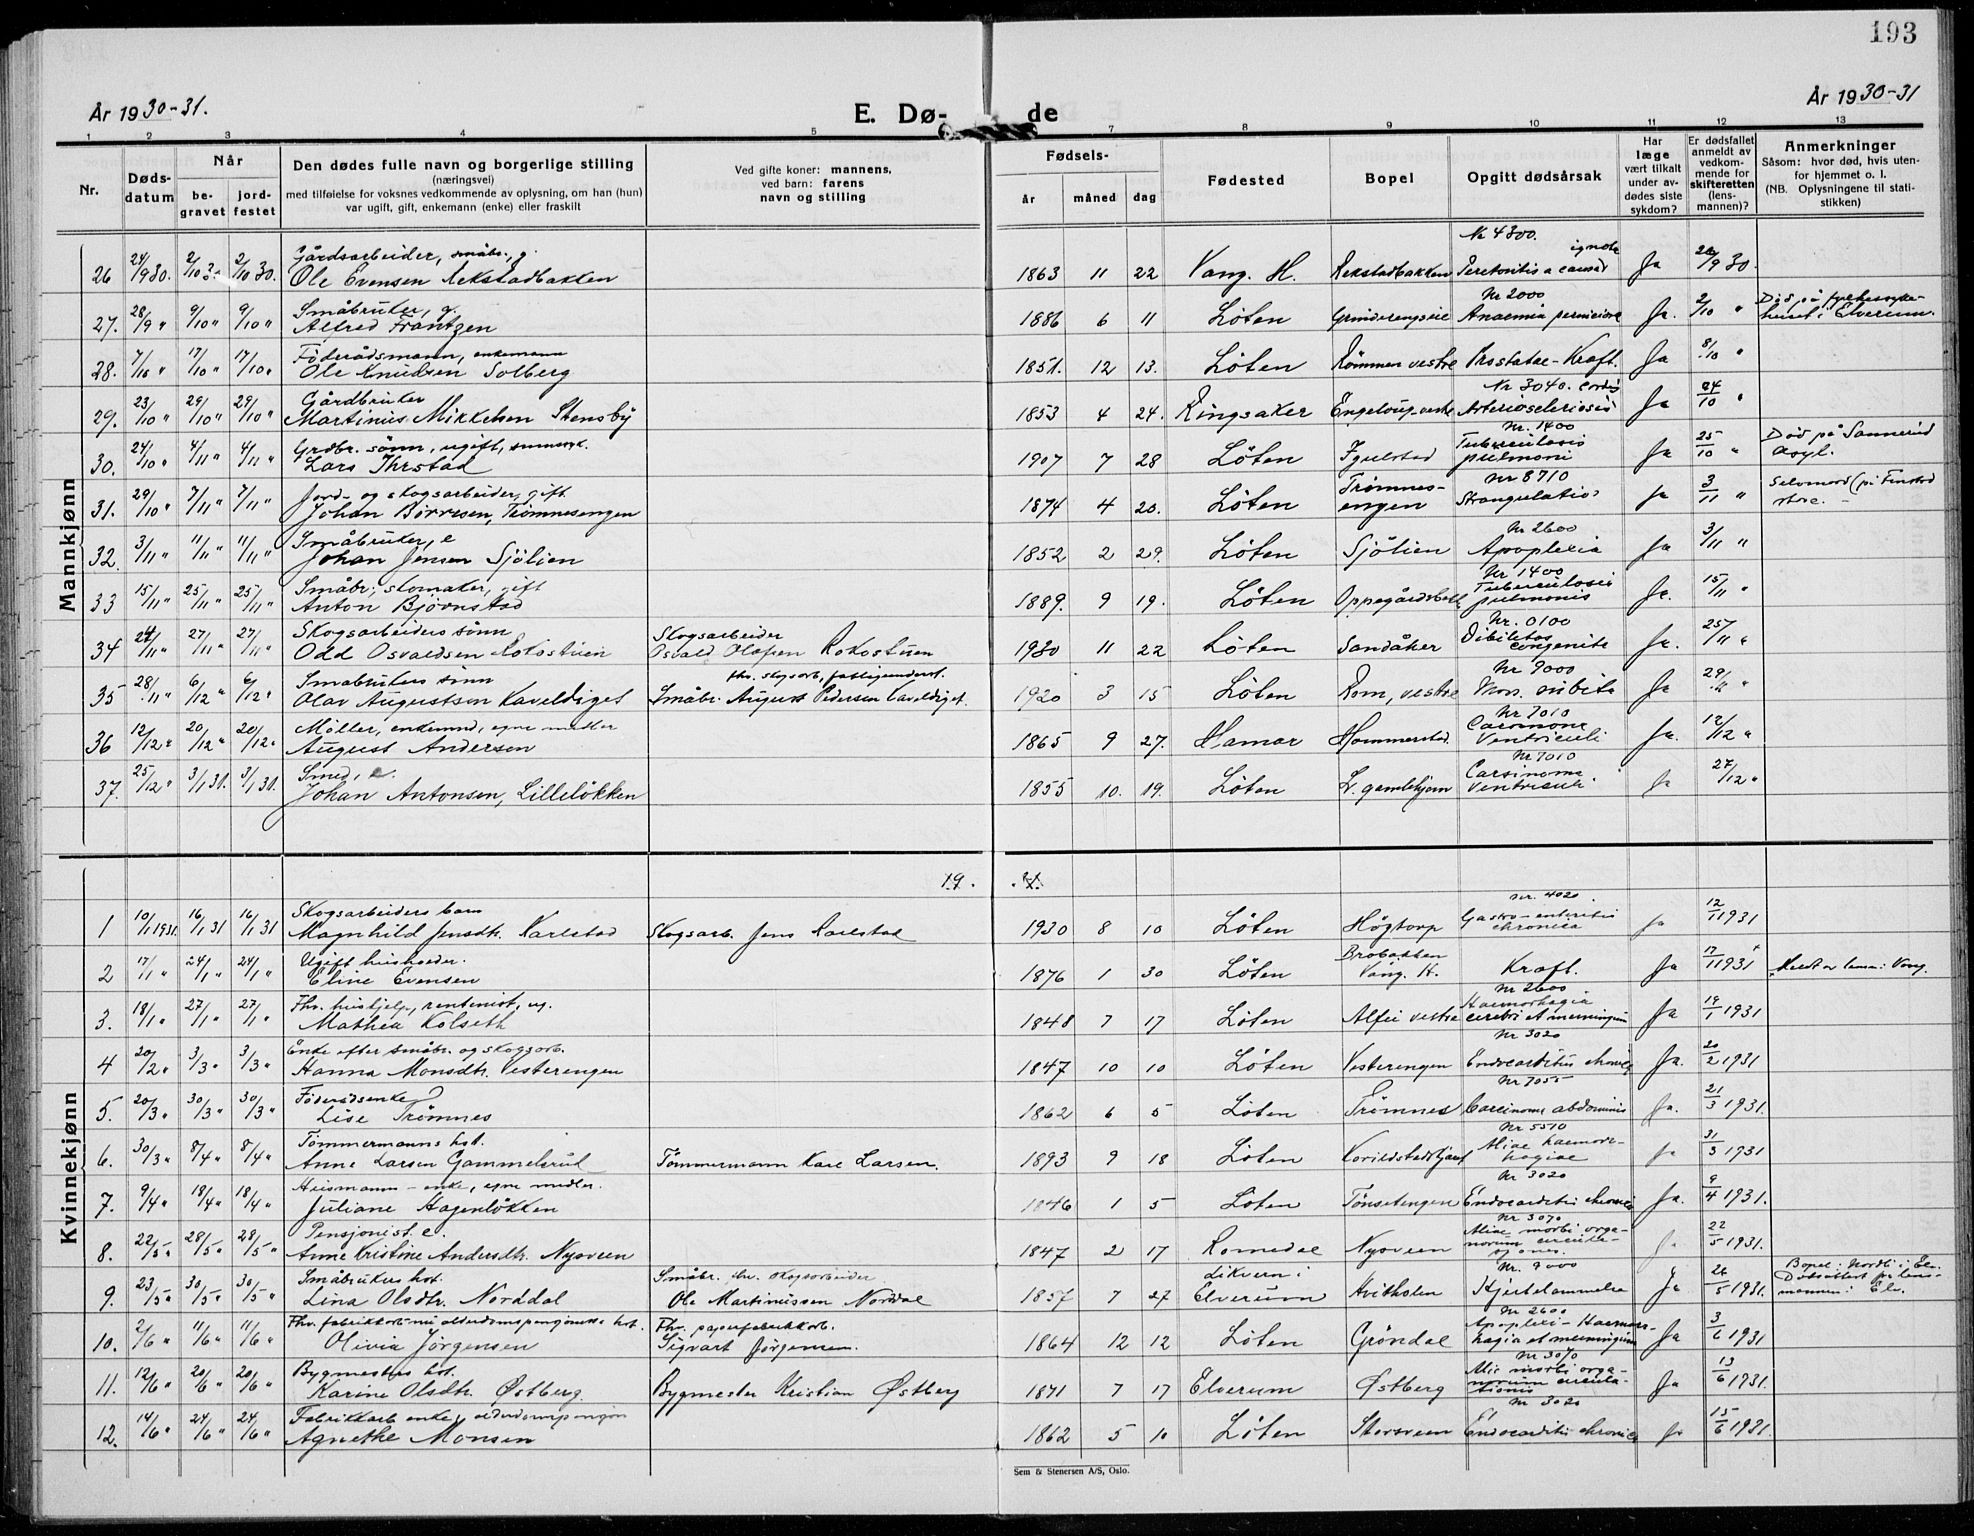 193
År 1930-31.
E. Dø-
de
År 1930-31
1 2 3 4 5 7 8 9 10 11 12 13
Nr.
Døds-
datum
Når
be-
gravet
jord-
festet
Den dødes fulle navn og borgerlige stilling
(næringsvei)
med tilføielse for voksnes vedkommende av oplysning, om han (hun)
var ugift, gift, enkemann (enke) eller fraskilt
Ved gifte koner: mannens,
ved barn: farens
navn og stilling
Fødsels-
år
måned
dag
Fødested
Bopel
Opgitt dødsårsak
Har
læge
vært tilkalt
under av-
dødes siste
sykdom?
Er dødsfallet
anmeldt av
vedkom-
mende for
skifteretten
(lens-
mannen)?
Anmerkninger
Såsom: hvor død, hvis uten-
for hjemmet o. l.
(NB. Oplysningene til stati-
stikken)
Mannkjønn
Gårdsarbeider, småbr., g. Nr 4300. ignota
26 24/9 30. 2/10 30 2/10 30. Ole Evensen Rekstadbakken 1863 11 22 Vang. H. Rekstadbakken Peretonitis a causa Ja 26/9 30.
Småbruker, g. Nr 2000 Død på fylkessyke-
27. 28/9 " 9/10 " 9/10 " Alfred Frantzen 1886 6 11 Löten Grinderengseie Anaemia perniciosa Ja. 2/10 " huset i Elverum.
Föderådsmann, enkemann
28. 7/10 " 17/10 " 17/10 " Ole Knudsen Solberg 1851. 12 13. Löten Römmen vestre Prostatae-Kræft. Ja 8/10 "
Gårdbruker Nr 3040. cordis
29. 23/10 " 29/10 " 29/10 " Martinus Mikkelsen Stensby 1853 4 24. Ringsaker Arteriosclerosis Ja 24/10 "
Grdbr. sönn, ugift, Nr. 1400 Tuberculosis Död på Sannerud
30. 24/10 " 4/11 " 4/11 " Lars 1907 7 28 Löten pulmoni Ja 25/10 " Asyl.
Jord- og skogsarbeider, gift Trömnes- Nr 8710 Selvmord (på Finstad
31. 29/10 " 7/11 " 7/11 " Johan Börresen, Trömnesengen 1874 4 20. Löten engen Strangulatio Ja 3/11 "
Småbruker, e Nr 2600
32. 3/11 " 11/11 " 11/11 " Johan Jensen Sjölien 1852 2 29. Löten Sjölien Apoplexia Ja 3/11 "
Småbr., skomaker, gift Nr 1400 Tuberculosis
33 15/11 " 25/11 " 25/11 " Anton Björnstad 1889. 9 19. Löten pulmonis Ja. 15/11 "
Skogsarbeiders sönn Skogsarbeider Nr. 0100 Debilitas
34 24/11 " 27/11 " 27/11 " Odd Osvaldsen Rokostuen Osvald Olafsen Rokostuen 1930 11 22 Löten Sandåker congenita Ja. 25/11 "
Småbrukers sönn fhv. skogsarb., fattigunderst. Nr 9000
35 28/11 " 6/12 " 6/12 " Olav Augustsen Kaveldiget Småbr. August Pedersen Caveldiget. 1920 3 15 Löten Rom, vestre Mors subita Ja 29/11 "
Möller, enkemnd, egne midler Nr 7010 Carcinoma
36 12/12 " 20/12 " 20/12 " August Andersen 1865 9 27. Hamar Hommerstad. Ventriculi Ja. 12/12 "
Smed, e. Nr 7010 Carsinoma
37. 25/12 " 3/1 31. 3/1 31. Johan Antonsen, Lillelökken 1855 10. 19. Löten L. gamlehjem Ventriculi Ja 27/12 "
19. 31.
Kvinnekjønn
Skogsarbeiders barn Nr. 4020. Gastro-enteritis
1 10/1 1931. 16/1 31 16/1 31 Magnhild Jensdtr. Karlstad Skogsarb. Jens Karlstad 1930 8 10 Löten Högtorp chronica Ja 12/1 1931
Ugift husholder. Brobakken
2 17/1 " 24/1 " 24/1 " Eline Evensen 1876 1 30 Löten Vang. H. Kræft. Ja 17/1 1931 Meldt av lensm. i Vang.
Fhv. hushjelp, rentenist, ug. Nr 2600 Haemorhagia
3. 18/1 " 27/1 " 27/1 " Mathea Kolseth 1848 7 17 Löten vestre cerebri et meningium Ja 19/1 1931
Enke efter småbr. og skogsarb. Nr 3020
4 20/2 " 3/3 " 3/3 " Hanna Monsdtr. Vesterengen 1847 10 10 Löten Vesterengen Endocarditis chronica Ja. 20/2 1931
Föderådsenke Nr 7055
5. 20/3 " 30/3 " 30/3 " Lise Trömnes 1862 6 5 Löten Trömnes Carcinoma abdominis Ja. 21/3 1931.
Tömmermanns hst. Nr 5510 Aliae haemorr-
6. 30/3 " 8/4 " 8/4 " Anne Larsen Gammelsrud Tömmermann Karl Larsen. 1893 9 18 Löten hagiae Ja 31/3 1931
Husmann-enke, egne midler. Nr 3020
7. 9/4 " 18/4 " 18/4 " Juliane Hagenlökken 1846 1 5 Löten Tönsetengen Endocarditis chronica Ja. 9/4 1931.
Pensjonist e. Nr 3070 Aliae morbi orga-
8. 22/5 " 28/5 " 28/5 " Anne Kristine Andersdtr. Nysveen 1847 2 17 Romedal Nysveen norum circula- Ja 22/5 1931.
Småbrukers hst. Småbr. fhv. skogsarbeider Nr. 9000 Bopel: Nordli i Elv.
9. 23/5 " 30/5 " 30/5 " Lina Olsdtr. Norddal Ole Martinussen Norddal 1857 7 27 Elverum Hvitholen Hjertelammelse Ja 26/5 1931. Dödsattest fra lens-
mannen i Elv.
Fhv. fabrikkarb. nu alderdomspensjonists hst. Fhv. papirfabrikkarb. Nr 2600 Apoplexi-Haemorr-
10. 2/6 " 11/6 " 11/6 " Olivia Jörgensen Sigvart Jörgensen. 1864 12 12 Löten Gröndal hagia et meningium Ja 3/6 1931
Bygmesters hst. Nr 3070 Alii morbi orga-
11. 12/6 " 20/6 " 20/6 " Karine Olsdtr. Östberg. Bygmester Kristian Östberg 1871 7 17 Elverum Östberg norum circula-tionis Ja 13/6 1931.
Fabrikkarb. enke, alderdomspensjon Nr 3020
12. 14/6 " 24/6 " 24/6 " Agnethe Monsen 1862 5 10 Löten Storsveen Endocarditis chronica Ja 15/6 1931.
Sem & Stenersen A/S, Oslo.